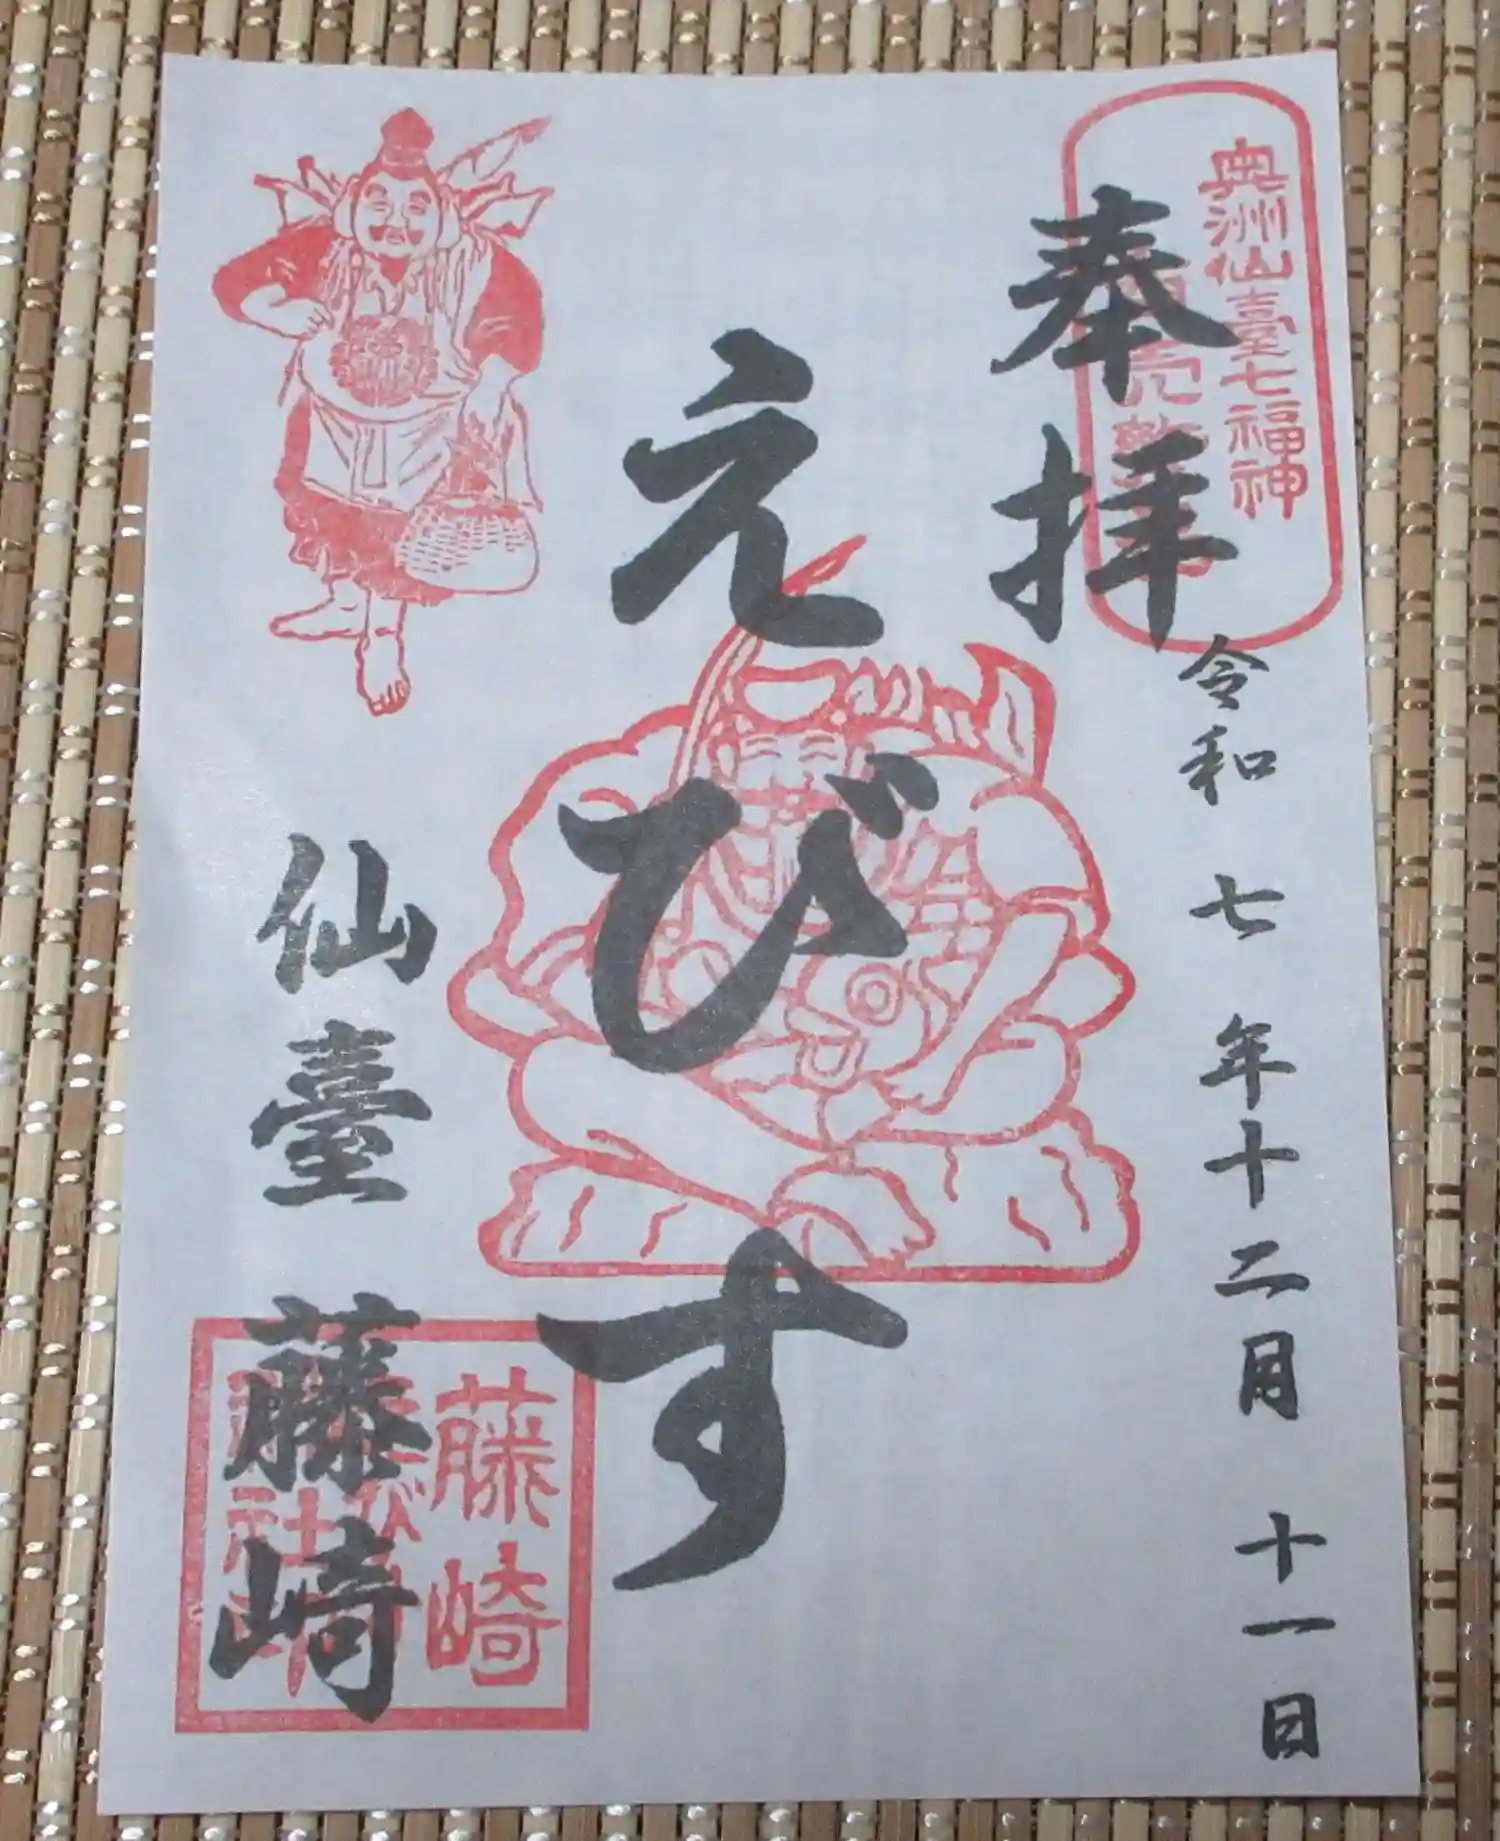 奥州仙臺七福神
奉拝
令和七年十二月十一日
えびす
仙臺藤崎
藤崎